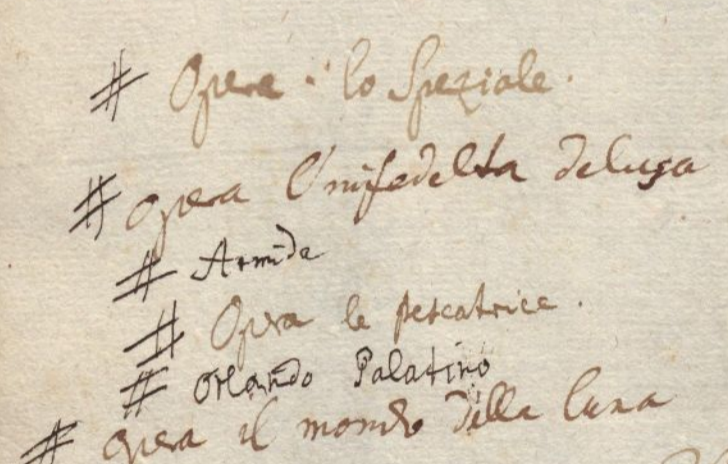 # Opera · lo Speziale.
# opera L'infedelta delusa
# Armida
# Opera le pescatrice.
# Orlando Palatino
# opera il mondo della luna